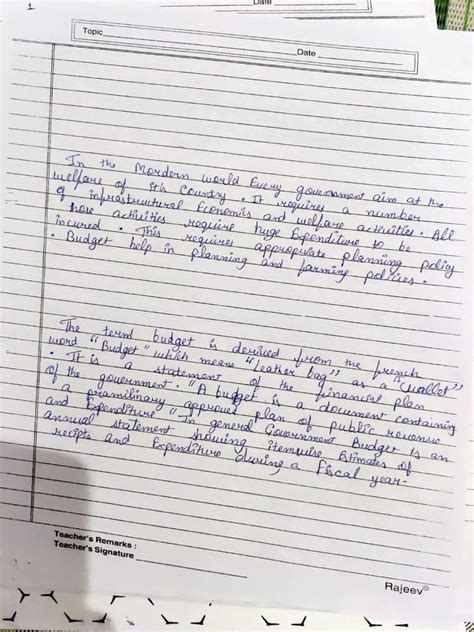 1
Date
Topic
Date
In the Mordern world Every government aim at the
welfare of ith Country. It requires a number
of infrastructural Economis and welfare activities. All
hore activities require huge Expenditure to be
incured. This requires appropriate planning policy
. Budget help in planning and farming policies.
The term budget is derived from the french
word "Budget" which means "Leather bag" as a "wallet"
. It is a statement of the financial plan
of the government. "A budget is a document containing
a pramilinary approved plan of public revenue
and Expenditure "In general Government Budget is an
annual statement showing itemwise Estimates of
recipts and Expenditure during a fiscal year.
Teacher's Remarks :
Teacher's Signature
Rajeev®